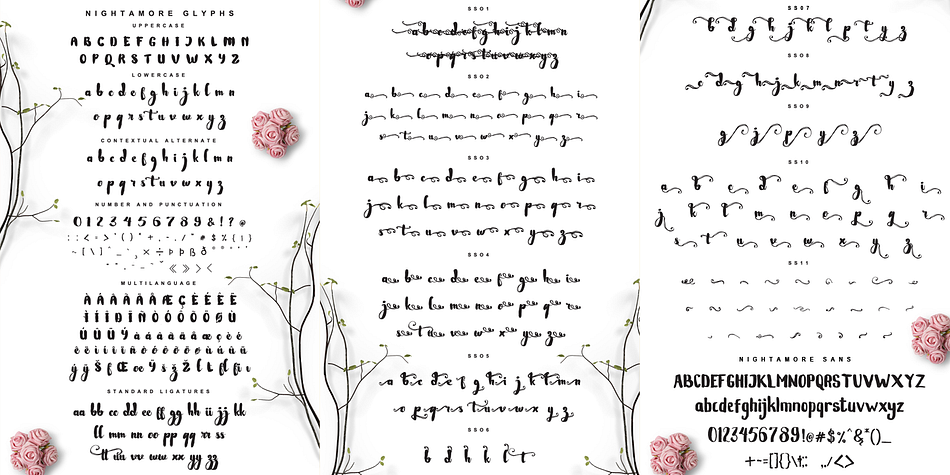 NIGHTAMORE GLYPHS
UPPERCASE
A B C D E F G H I J K L M N
O P Q R S T U V W X Y Z
LOWERCASE
a b c d e f g h i j k l m n
o p q r s t u v w x y z
CONTEXTUAL ALTERNATE
a b c d e f g h i j k l m n
o p q r s t u v w x y z
NUMBER AND PUNCTUATION
0 1 2 3 4 5 6 7 8 9 & ! ? @
MULTILANGUAGE
STANDARD LIGATURES
aa bb cc dd ee ff gg hh ii jj kk
ll mm nn oo pp qq rr ss
tt uu vv ww xx yy zz
SS01
a b c d e f g h i j k l m n
o p q r s t u v w x y z
SS02
a b c d e f g h i
j k l m n o p q r
s t u v w x y z
SS03
a b c d e f g h i
j k l m n o p q r
s t u v w x y z
SS04
a b c d e f g h i
j k l m n o p q r
s t u v w x y z
SS05
a b c d e f g h i j k l m n
o p q r s t u v w x y z
SS06
b d h k l t
SS07
b d g h j k l p t y z
SS08
c d g h j k m n r t y z
SS09
g j p y z
SS10
a b c d e f g h i
j k l m n e p q r
s t u v w x y z
SS11
NIGHTAMORE SANS
ABCDEFGHIJKLMNOPQRSTUVWXYZ
abcdefghijklmnopqrstuvwxyz
0123456789!@#$%^&*()_
+-=[]{}\|:; .,/<>